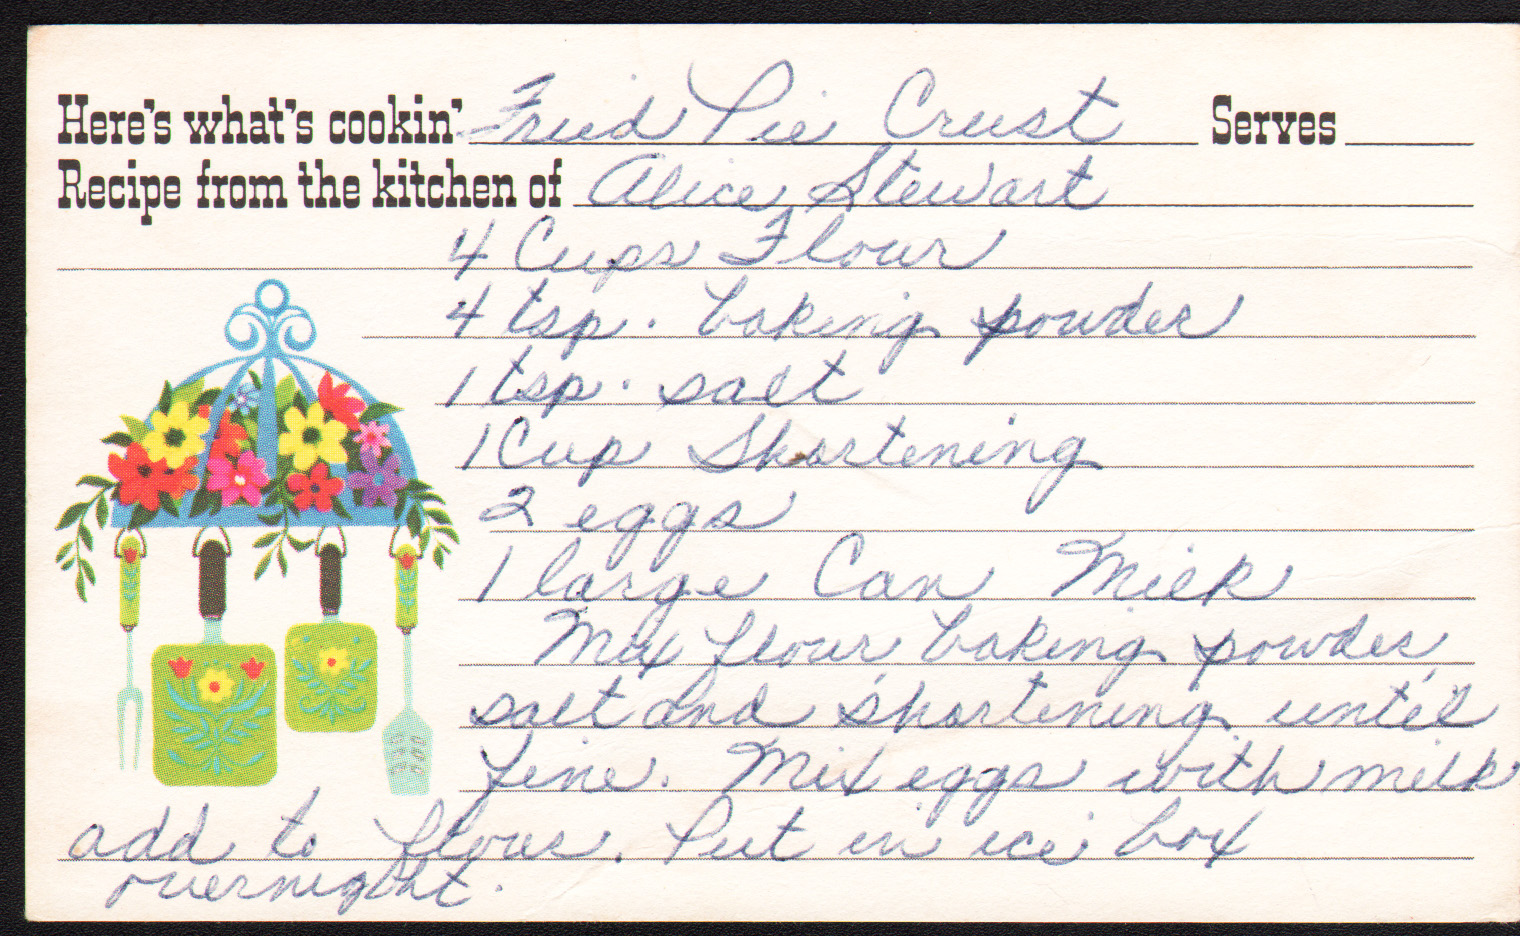 Here's what's cookin' Fried Pie Crust Serves
Recipe from the kitchen of Alice Stewart
4 Cups Flour
4 tsp. baking powder
1 tsp. salt
1 Cup Shortening
2 eggs
1 large Can Milk
Mix flour baking powder,
salt and shortening until
fine. Mix eggs with milk
add to flour. Put in ice box
overnight.